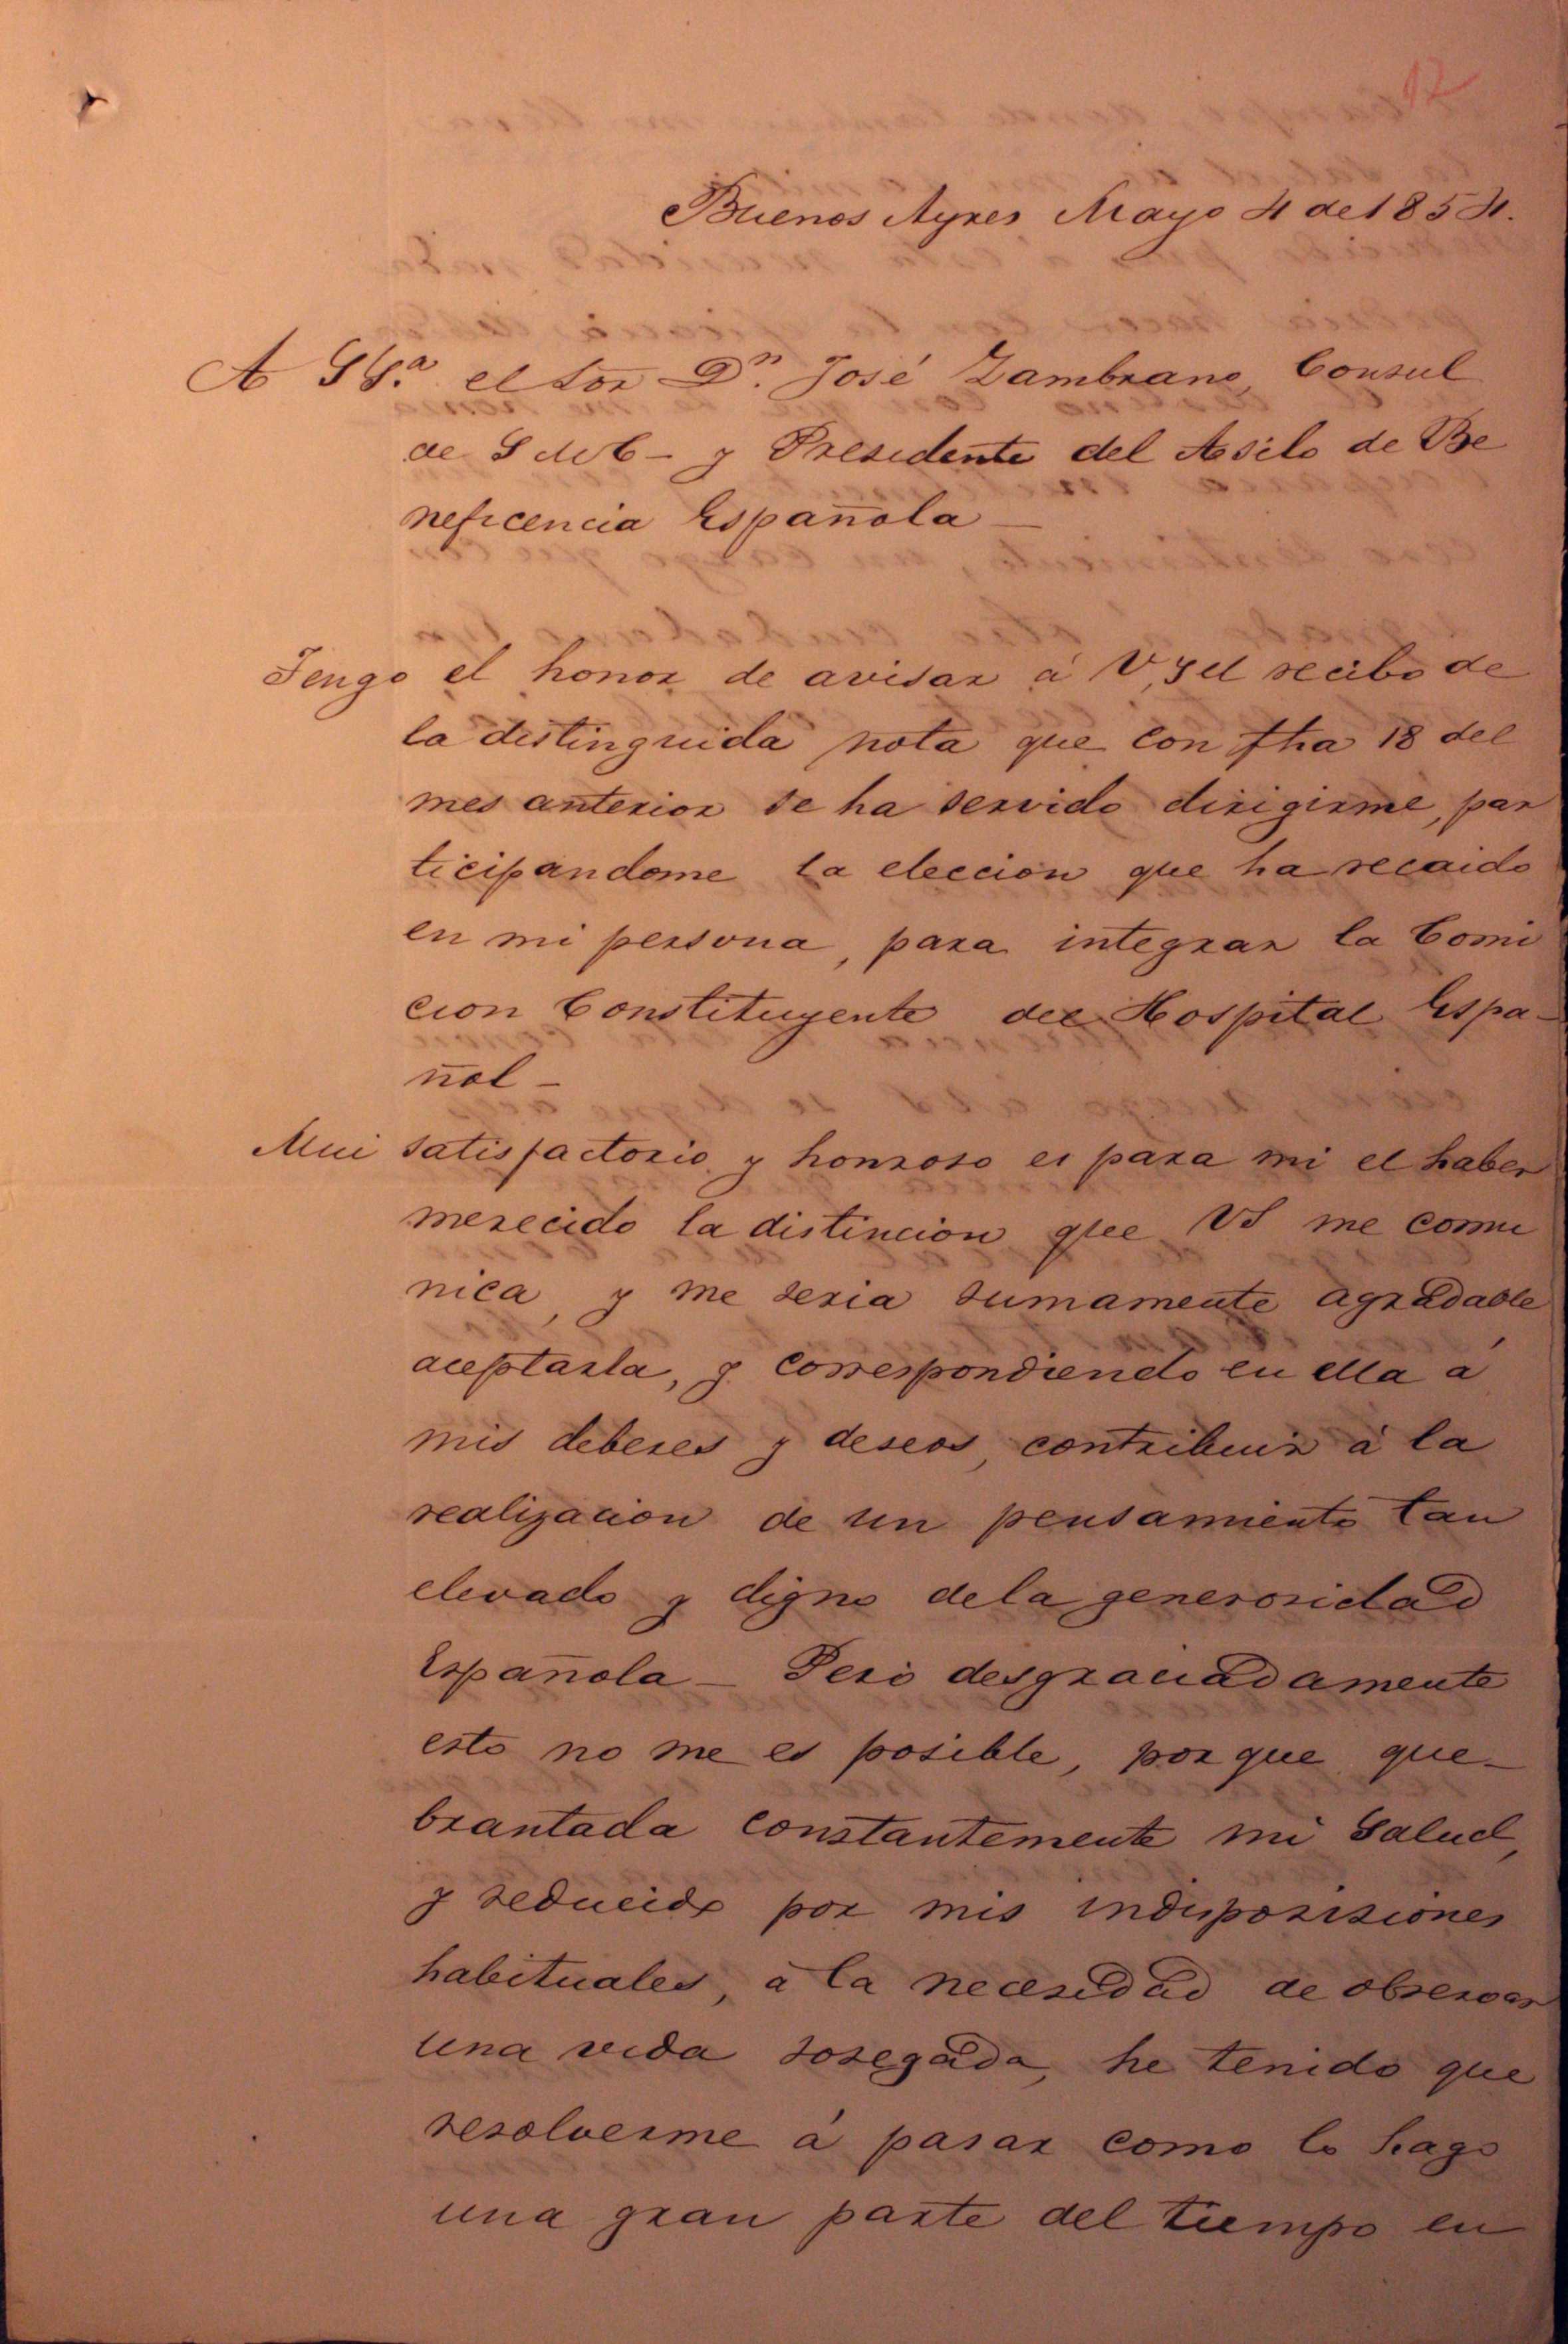 12
Buenos Ayres Mayo 4 de 1854.
A SSª. el Sor Dn. José Zambrano, Consul
de S M C - y Presidente del Asilo de Be
neficencia Española -
Tengo el honor de avisar á V,S el recibo de
la distinguida nota que con fha 18 del
mes anterior se ha servido dirigirme, par
ticipandome la eleccion que ha recaido
en mi persona, para integrar la Comi
cion Constituyente del Hospital Espa-
ñol -
Mui satisfactorio y honroso es para mi el haber
merecido la distincion que VS me comu
nica, y me seria sumamente agradable
aceptarla, y correspondiendo en ella á
mis deberes y deseos, contribuir á la
realizacion de un pensamiento tan
elevado y digno de la generosidad
Española - Pero desgraciadamente
esto no me es posible, por que que-
brantada constantemente mi salud,
y reducido por mis indisposisiones
habituales, á la necesidad de observar
una vida sosegada, he tenido que
resolverme á pasar como lo hago
una gran parte del tiempo en